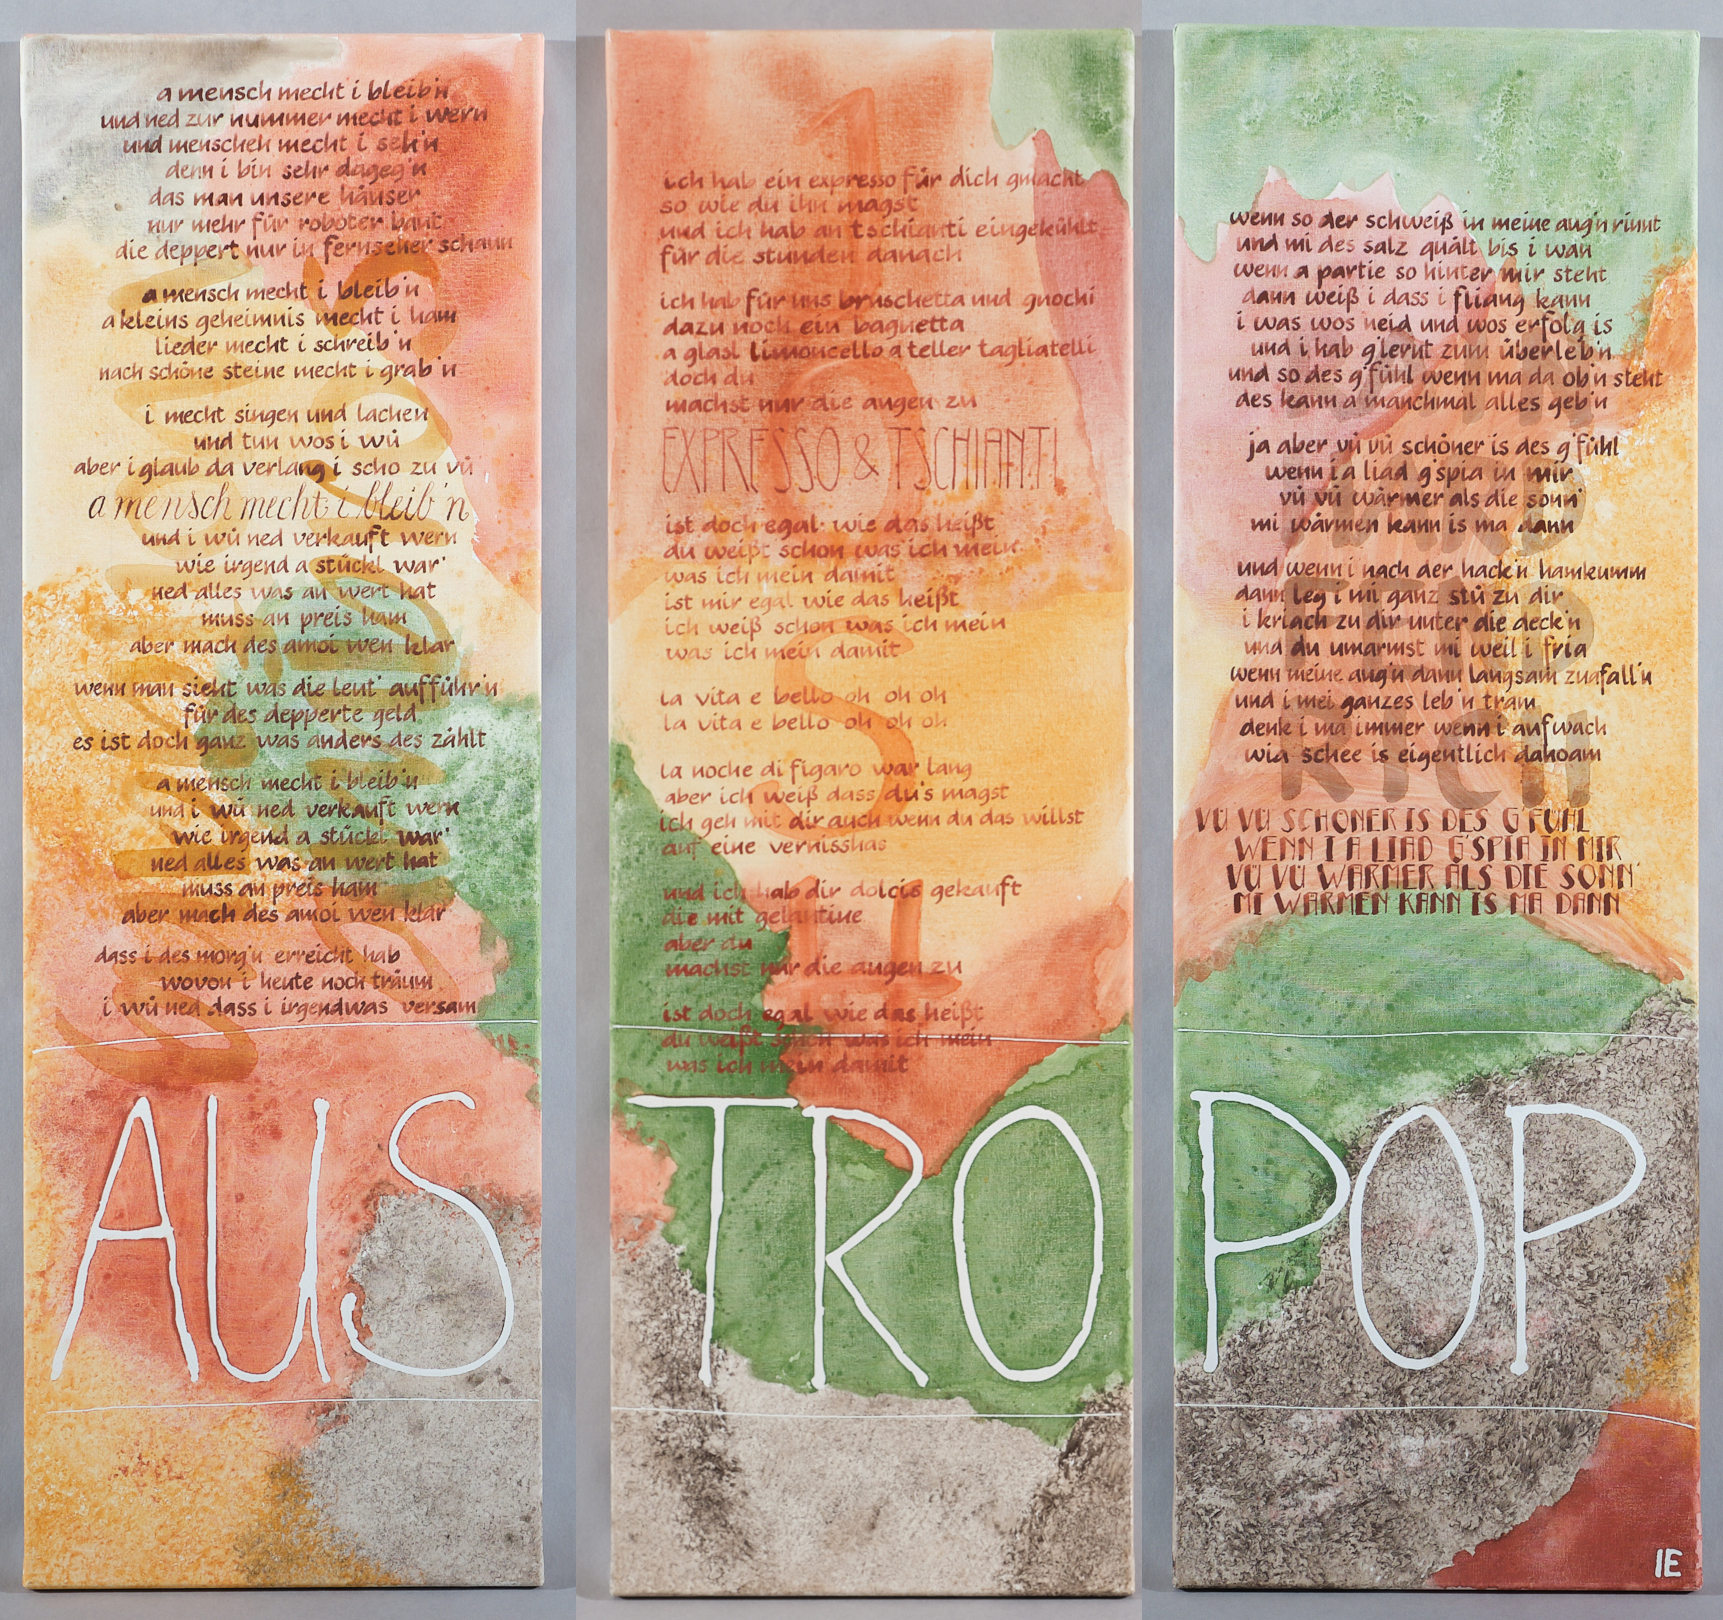 a mensch mecht i bleib'n
und ned zur nummer mecht i wern
und menschen mecht i seh'n
denn i bin sehr dageg'n
das man unsere häuser
nur mehr für roboter baut
die deppert nur in fernseher schaun
a mensch mecht i bleib'n
a kleins geheimnis mecht i ham
lieder mecht i schreib'n
nach schöne steine mecht i grab'n
i mecht singen und lachen
und tun wos i wü
aber i glaub da verlang i scho zu vü
a mensch mecht i bleib'n
und i wü ned verkauft wern
wie irgend a stückl war'
ned alles was an wert hat
muss an preis ham
aber mach des amoi wen klar
wenn man sieht was die leut' aufführ'n
für des depperte geld
es ist doch ganz was anders des zählt
a mensch mecht i bleib'n
und i wü ned verkauft wern
wie irgend a stückl war'
ned alles was an wert hat
muss an preis ham
aber mach des amoi wen klar
dass i des morg'n erreicht hab
wovon i heute noch träum
i wü ned dass i irgendwas versam
AUS
ich hab ein expresso für dich gmacht
so wie du ihn magst
und ich hab an tschianti eingekühlt
für die stunden danach
ich hab für uns bruschetta und gnochi
dazu noch ein baguetta
a glasl limoncello a teller tagliatelli
doch du
machst nur die augen zu
EXPRESSO & TSCHIANTI
ist doch egal wie das heißt
du weißt schon was ich mein
was ich mein damit
ist mir egal wie das heißt
ich weiß schon was ich mein
was ich mein damit
la vita e bello oh oh oh
la vita e bello oh oh oh
la noche di figaro war lang
aber ich weiß dass du's magst
ich geh mit dir auch wenn du das willst
auf eine vernisshas
und ich hab dir dolcis gekauft
die mit gelantine
aber du
machst nur die augen zu
ist doch egal wie das heißt
du weißt schon was ich mein
was ich mein damit
TRO
wenn so der schweiß in meine aug'n rinnt
und mi des salz quält bis i wan
wenn a partie so hinter mir steht
dann weiß i dass i fliang kann
i was wos neid und wos erfolg is
und i hab g'lernt zum überleb'n
und so des g'fühl wenn ma da ob'n steht
des kann a manchmal alles geb'n
ja aber vü vü schöner is des g'fühl
wenn i a liad g'spia in mir
vü vü wärmer als die sonn'
mi wärmen kann is ma dann
und wenn i nach der hack'n hamkumm
dann leg i mi ganz stü zu dir
i kriach zu dir unter die deck'n
und du umarmst mi weil i fria
wenn meine aug'n dann langsam zuafall'n
und i mei ganzes leb'n tram
denk i ma immer wenn i aufwach
wia schee is eigentlich dahoam
VÜ VÜ SCHÖNER IS DES G'FÜHL
WENN I A LIAD G'SPIA IN MIR
VÜ VÜ WÄRMER ALS DIE SONN'
MI WÄRMEN KANN IS MA DANN
POP
IE